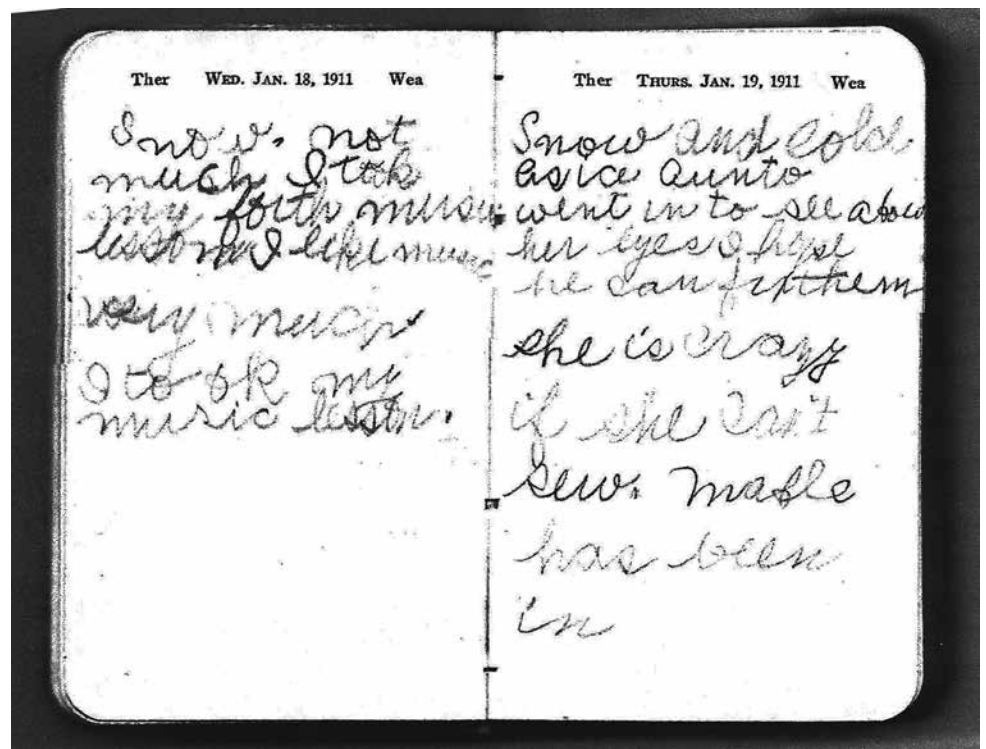 Ther WED. JAN. 18, 1911 Wea
Snow. not
much I took
my forth music
lesson I like music
very much
I took my
music lesson.
Ther THURS. JAN. 19, 1911 Wea
Snow and cold
as ice Aunto
went in to see about
her eyes I hope
he can fix them
she is crazy
if she can't
sew. Mable
has been
in